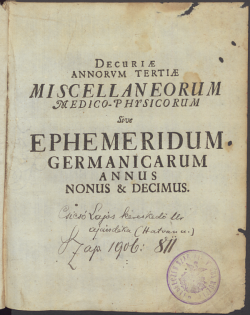 DECURIÆ
ANNORVM TERTIÆ
MISCELLANEORUM
MEDICO-PHYSICORUM
Sive
EPHEMERIDUM
GERMANICARUM
ANNUS
NONUS & DECIMUS.
Lajos
ajándéka (Hatvan u.)
1906: 811